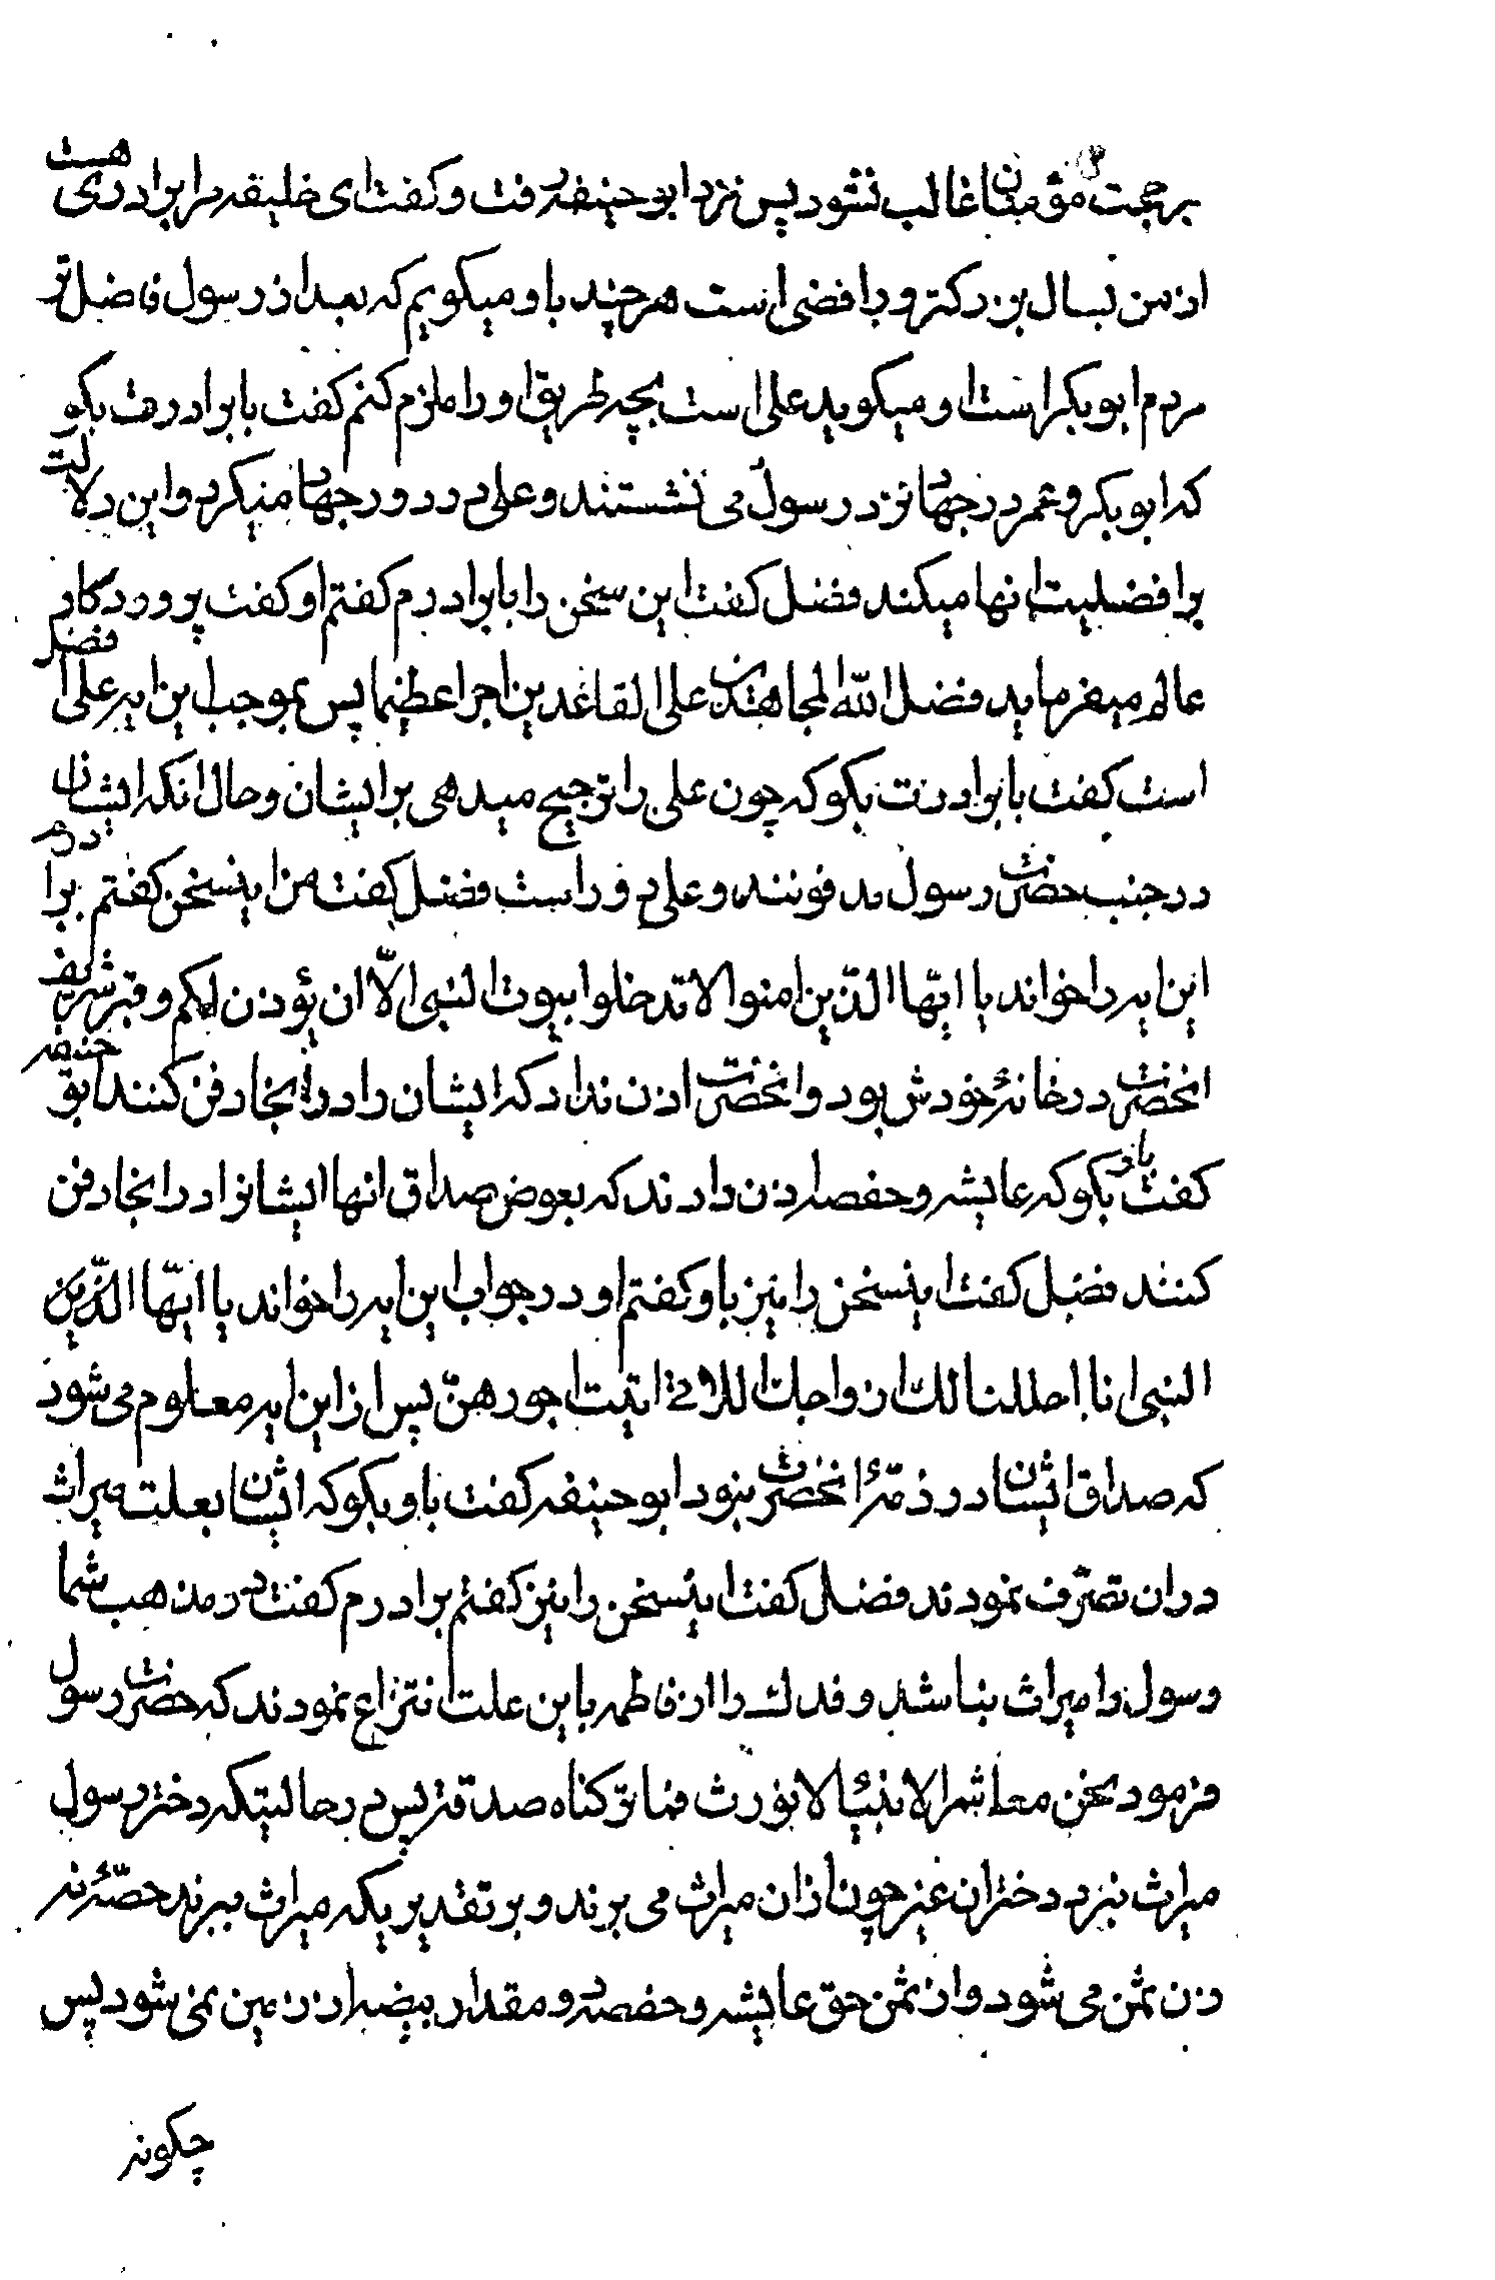 بر حجت مؤمنان غالب نشود پس نزد ابو حنیفه رفت و کفت ای خلیفه مرا برادری هست
از من بسال بزرکتر و رافضی است هر چند باو میکویم که بعد از رسول فاضل تر
مردم ابو بکر است او میکوید علی است بچه طریق او را ملزم کنم کفت با برادرت بکو
که ابو بکر و عمر در جهاد نزد رسول می نشستند و علی در دور جهاد میکرد و این دلالت
بر افضلیت انها میکند فضل کفت این سخن را با برادرم کفتم او کفت پروردکار
عالم میفرماید فضل الله المجاهدین علی القاعدین اجرا عظیما پس بموجب این ایه علی افضل
است کفت با برادرت بکو که چون علی را ترجیح میدهی بر ایشان و حال انکه ایشان
در جنب حضرت رسول مدفونند و علی دور است فضل کفت من اینسخن کفتم برادرم
این ایه را خواند یا ایّها الذّین امنوا لا تدخلوا بیوت النبی الاّ ان یؤذن لکم و قبر شریف
انحضرت در خانهٔ خودش بود و انحضرت اذن نداد که ایشان را در انجا دفن کنند ابو حنیفه
کفت باو بکو که عایشه و حفصه اذن دادند که بعوض صداق انها ایشانرا در انجا دفن
کنند فضل کفت اینسخن را نیز باو کفتم او در جواب این ایه را خواند یا ایّها الذّین
النبی انا احللنا لك ازواجك اللاتی اتیت اجورهنّ پس از این ایه معلوم می شود
که صداق ایشان در ذمّهٔ انحضرت نبود ابو حنیفه کفت باو بکو که ایشان بعلت میراث
در ان تصرّف نمودند فضل کفت اینسخن را نیز کفتم برادرم کفت در مذهب شما
رسول را میراث نباشد و فدك را از فاطمه باین علت انتزاع نمودند که حضرت رسول
فرمود نحن معاشر الانبیٔا لا نورث فما ترکناه صدقة پس در حالیتکه دختر رسول
میراث نبرد دختران غیر چون از ان میراث می برند و بر تقدیر یکه میراث ببرند حصّهٔ نه
زن ثمن می شود و از ثمن حق عایشه و حفصه دو مقدار بیضه از زمین نمی شود پس
چکونه